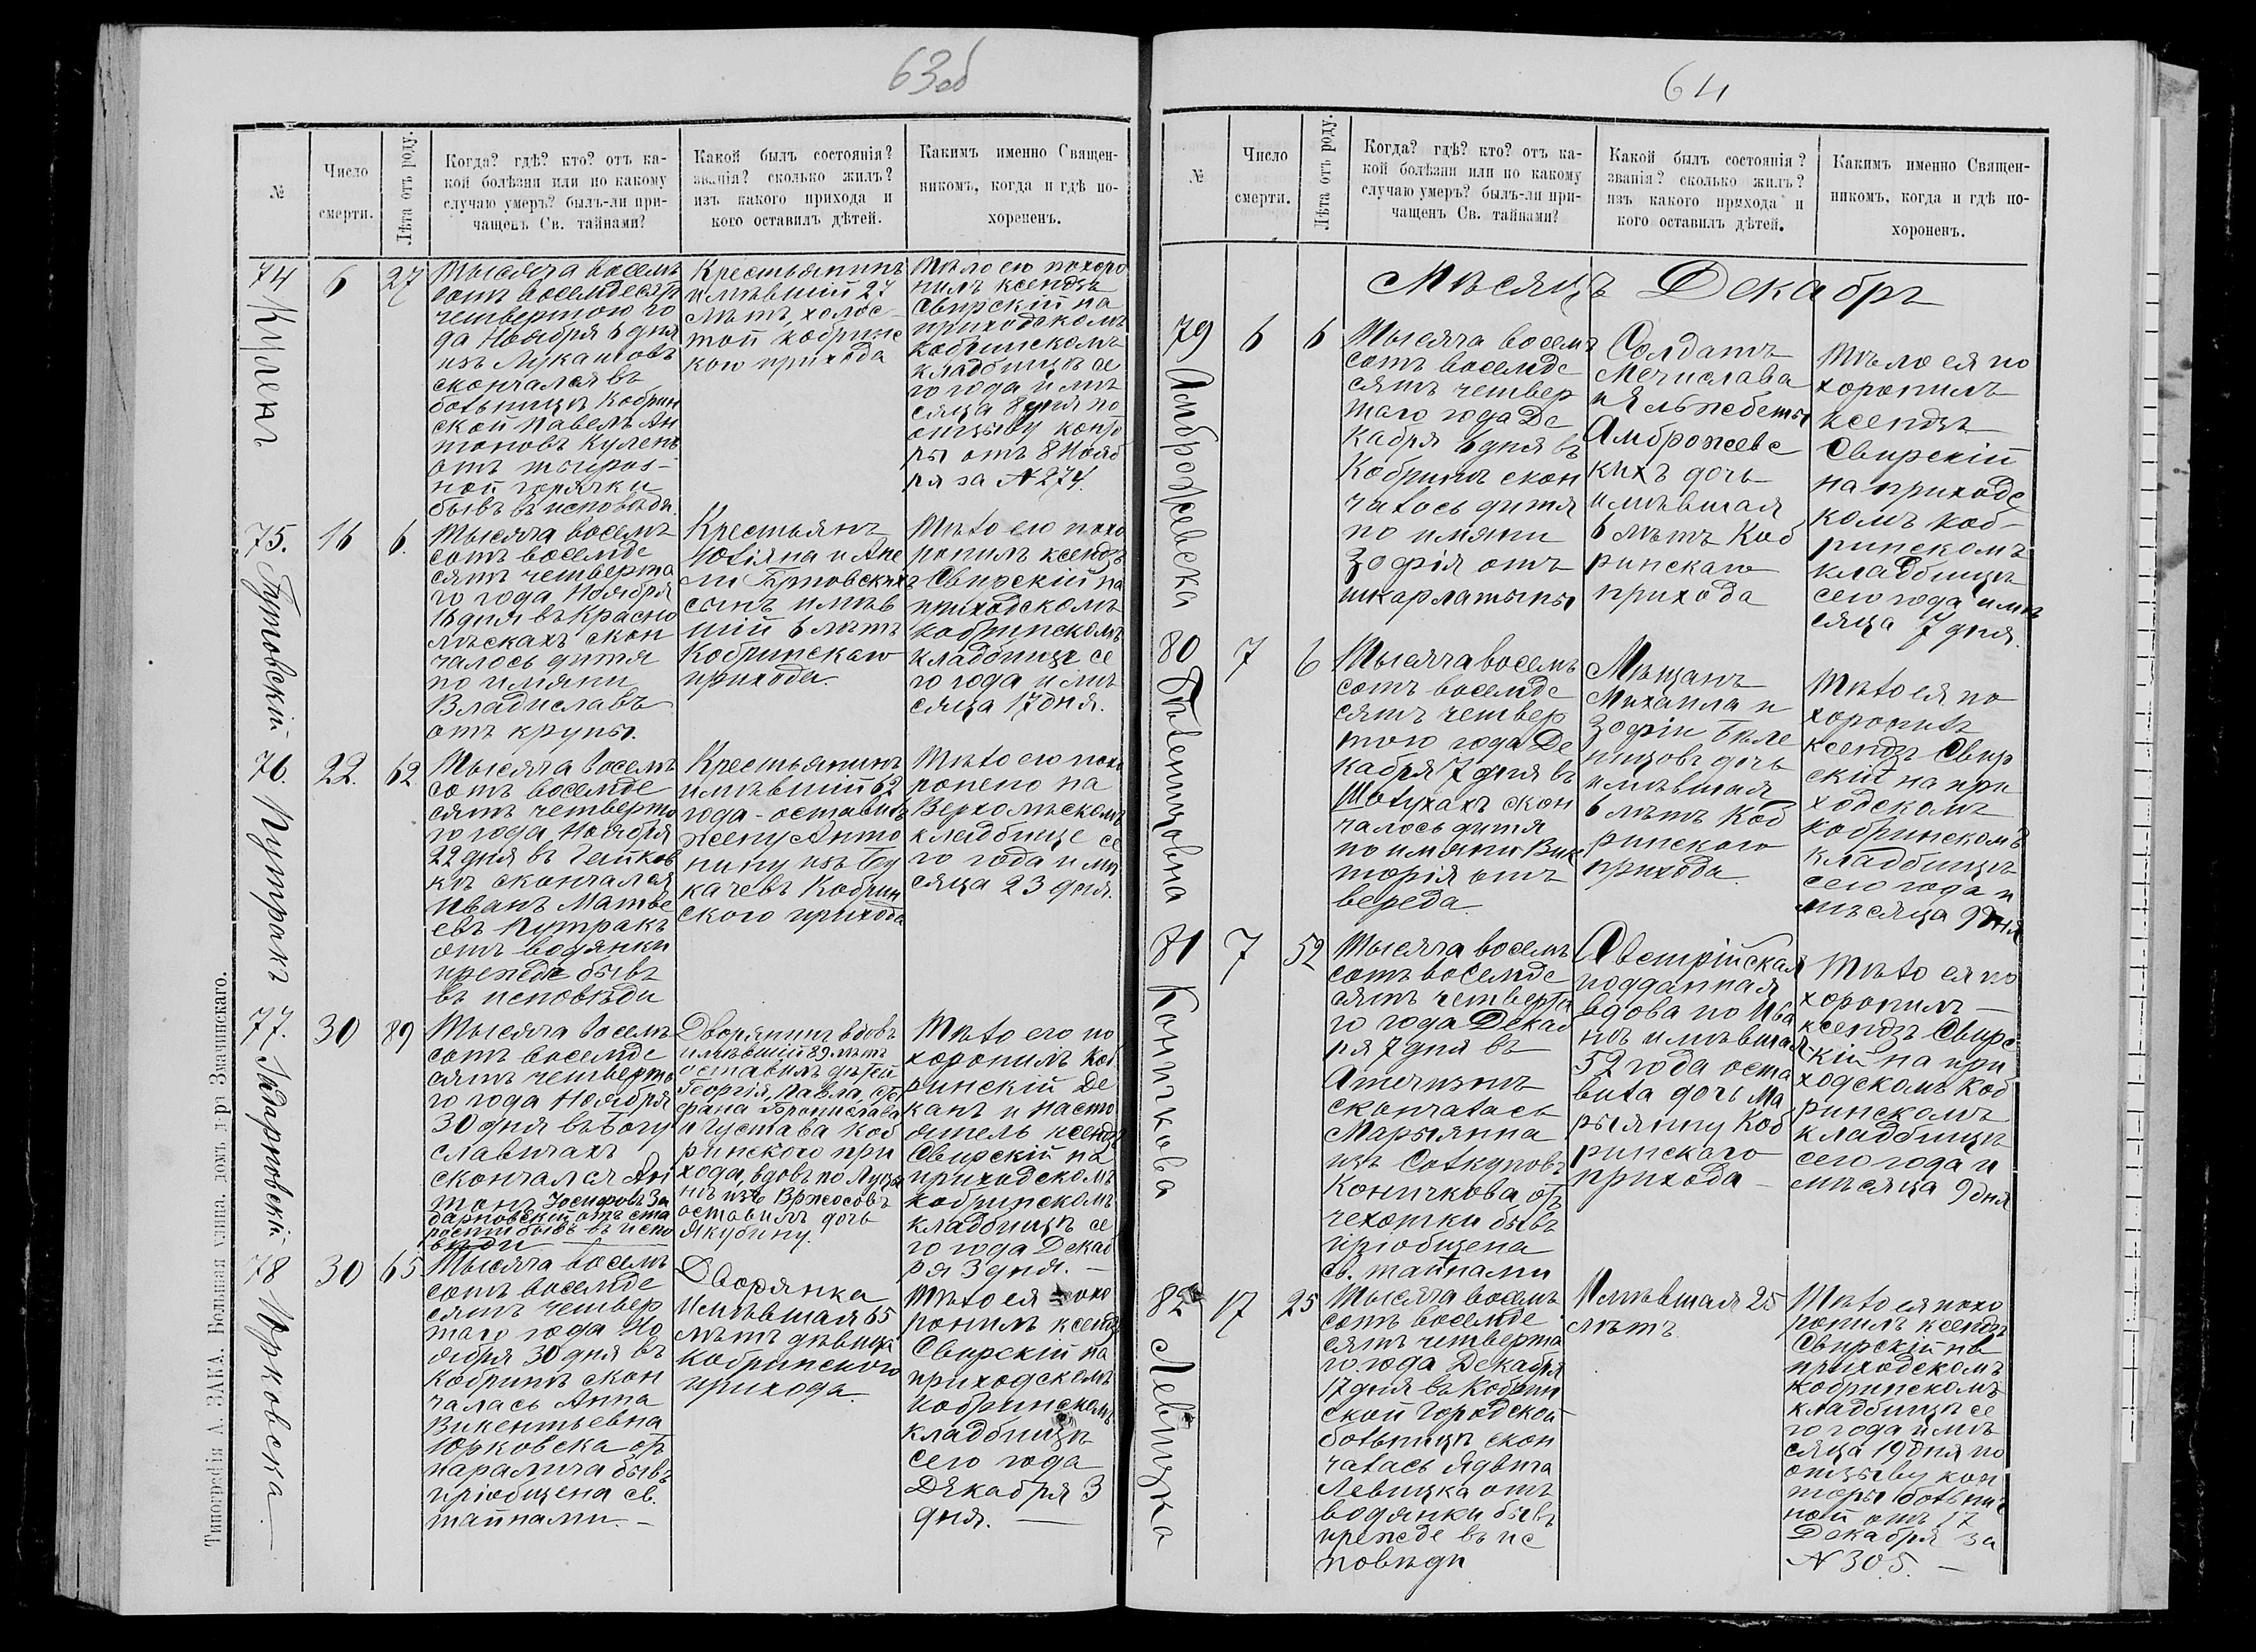 63 об
№
Число
смерти.
Лѣта отъ роду.
Когда? гдѣ? кто? отъ ка-
кой болѣзни или по какому
случаю умеръ? былъ-ли при-
чащенъ Св. тайнами?
Какой былъ состоянія?
званія? сколько жилъ?
изъ какого прихода и
кого оставилъ дѣтей.
Какимъ именно Священ-
никомъ, когда и гдѣ по-
хороненъ.
74
Кулень
6
27
Тысяча восемь
сотъ восемдесятъ
четвертого го
да Ноября 6 дня
изъ Лукашовъ
скончался въ
больницѣ Кобрин
ской Павелъ Ан
тоновъ Кулень
отъ тифоз-
ной горячки
бывъ въ исповѣди.
Крестьянинъ
имѣвшій 27
лѣтъ, холос-
той Кобринс
кого прихода
Тѣло его похоро
нилъ ксендзъ
Свирскій на
приходскомъ
Кобринскомъ
кладбищѣ се
го года и мѣ
сяца 8 дня по
отзыву конто
ры отъ 8 Нояб
ря за N 274.
75.
Гутовскій
16
6.
Тысяча восемь
сотъ восемде
сятъ четверта
го года Ноября
16 дня въ Красно
лѣскахъ скон
чалось дитя
по имяни
Владиславъ
отъ крупы.
Крестьянъ
Юліяна и Ане
ли Гутовскихъ
сынъ имѣв
шій 6 лѣтъ
Кобринскаго
прихода.
Тѣло его похо
ронилъ ксендзъ
Свирскій на
приходскомъ
Кобринскомъ
кладбище се
го года и мѣ
сяца 17 дня.
76.
Путракъ
22.
62
Тысяча восемь
сотъ восемде
сятъ четверто
го года Ноября
22 дня въ Гайков
кѣ скончался
Иванъ Матве
евъ Путракъ
отъ водянки
прежде бывъ
въ исповѣди
Крестьянинъ
имѣвшій 62
года - оставилъ
жену Анто
нину изъ Бу
качевъ Кобрин
ского прихода
Тѣло его похо
ронено на
Верхолѣскомъ
кладбище се
го года и мѣ
сяца 23 дня.
77.
Задарновскій
30
89
Тысяча восемь
сотъ восемде
сятъ четверто
го года Ноября
30 дня въ Богу
славичахъ
скончался Ан
тонъ Іосифовъ За
дарновскій отъ ста
рости бывъ въ испо
вѣди
Дворянинъ вдовъ
имѣвшій 89 лѣтъ
оставилъ дѣтей
Георгія, Павла, Сте
фана Бронислава
и Густава Коб
ринского при
хода, вдовъ по Луца
ніи изъ Вржосовъ
оставилъ дочь
Якубину.
Тѣло его по
хоронилъ Коб
ринскій Де
канъ и насто
ятель ксендзъ
Свирскій на
приходскомъ
Кобринскомъ
кладбищѣ се
го года Декаб
ря 3 дня. —
78
Юрковска
30
65
Тысяча восемь
сотъ восемде
сятъ четвер
таго года Но
ября 30 дня въ
Кобринѣ скон
чалась Анна
Викентьевна
Юрковска отъ
паралича бывъ
пріобщена св.
тайнами. —
Дворянка
имѣвшая 65
лѣтъ дѣвица
Кобринского
прихода.
Тѣло ея похо
ронилъ ксендзъ
Свирскій на
приходскомъ
Кобринскомъ
кладбищѣ
сего года
Декабря 3
дня. —
Типографія А. ЗАКА. Большая улица, домъ
64
№
Число
смерти.
Лѣта отъ роду.
Когда? гдѣ? кто? отъ ка-
кой болѣзни или по какому
случаю умеръ? былъ-ли при-
чащенъ Св. тайнами?
Какой былъ состоянія?
званія? сколько жилъ?
изъ какого прихода и
кого оставилъ дѣтей.
Какимъ именно Священ-
никомъ, когда и гдѣ по-
хороненъ.
Мѣсяцъ Декабрь
79
Амброжевска
6
6
Тысяча восемь
сотъ восемде
сятъ четвер
таго года Де
кабря 6 дня въ
Кобринѣ скон
чалось дитя
по имяни
Зофія отъ
шкарлатыны
Солдатъ
Мечислава
и Яльжбеты
Амброжевс
кихъ дочь
имѣвшая
6 лѣтъ Коб
ринскаго
прихода
Тѣло ея по
хоронилъ
ксендзъ
Свирскій
на приходс
комъ Коб-
ринскомъ
кладбищѣ
сего года и мѣ
сяца 7 дня.
80
Бѣленцовна
7
6
Тысяча восемь
сотъ восемде
сятъ четвер
того года Де
кабря 7 дня въ
Шолухахъ скон
чалось дитя
по имяни Вик
торія отъ
вереда.
Мѣщанъ
Михаила и
Зофіи Бѣле
ницовъ дочь
имѣвшая
6 лѣтъ Коб
ринского
прихода
Тѣло ея по
хоронилъ
ксендзъ Свир
скій на при
ходскомъ
Кобринскомъ
кладбищѣ
сего года и
мѣсяца 9 дня
81
Коничкова
7
52
Тысяча восемь
сотъ восемде
сятъ четверта
го года Декаб
ря 7 дня въ
Атечизнѣ
скончалась
Марыянна
изъ Солкуновъ
Коничкова отъ
чехотки бывъ
пріобщена
св. тайнами
Австрійская
подданная
вдова по Ива
нѣ имѣвшая
52 года оста
вила дочь Ма
рыянну Коб
ринскаго
прихода —
Тѣло ея по
хоронилъ —
ксендзъ Свирс
кій на при
ходскомъ Коб
ринскомъ
кладбищѣ
сего года и
мѣсяца 9 дня
82
Левицка
17
25
Тысяча восемь
сотъ восемде
сятъ четверта
го года Декабря
17 дня въ Кобрин
ской Городской
больницѣ скон
чалась Ядвига
Левицка отъ
водянки бывъ
прежде въ ис
повѣди
Имѣвшая 25
лѣтъ.
Тѣло ея похо
ронилъ ксендзъ
Свирскій на
приходскомъ
Кобринскомъ
кладбищѣ се
го года и мѣ
сяца 19 дня по
отзыву кон
торы больнич
ной отъ 17
Декабря за
N 305. —